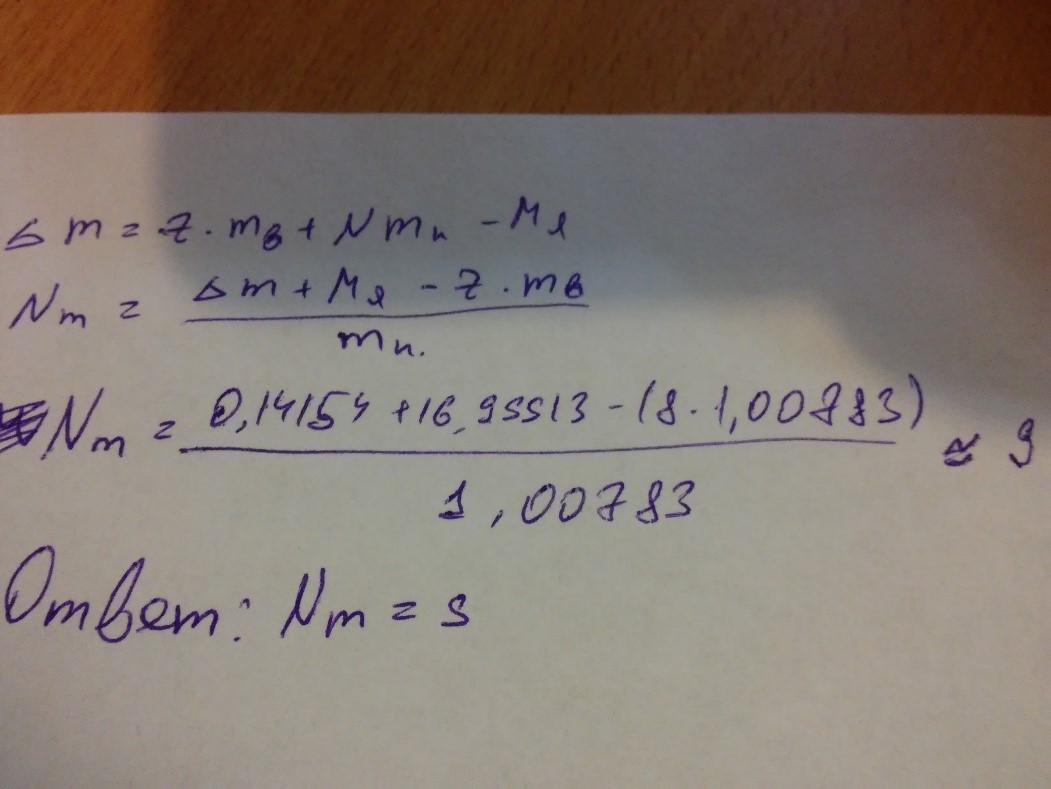 Δm = z · mв + Nmn - Mя
Nm = (Δm + Mя - z · mв) / mn.
Nm = (0,14154 + 16,99913 - (8 · 1,00783)) / 1,00783 ≈ 9
Ответ: Nm = 9